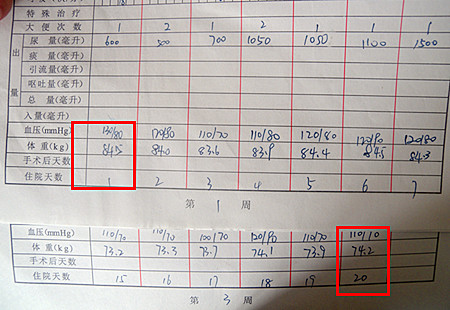 特殊治疗
大便次数 1 2 1 2 1 1 1
出量 尿量(毫升) 600 500 700 1050 1050 1100 1500
痰量(毫升)
引流量(毫升)
呕吐量(毫升)
总量(毫升)
入量(毫升)
血压(mmHg) 130/80 120/80 110/70 110/80 120/80 120/80 120/80
体重(kg) 84.5 84.0 83.6 83.9 84.4 84.5 84.3
手术后天数
住院天数 1 2 3 4 5 6 7
第 1 周
血压(mmHg) 110/70 110/70 100/70 120/80 110/70 110/70
体重(kg) 73.2 73.3 73.7 74.1 73.9 74.2
手术后天数
住院天数 15 16 17 18 19 20
第 3 周